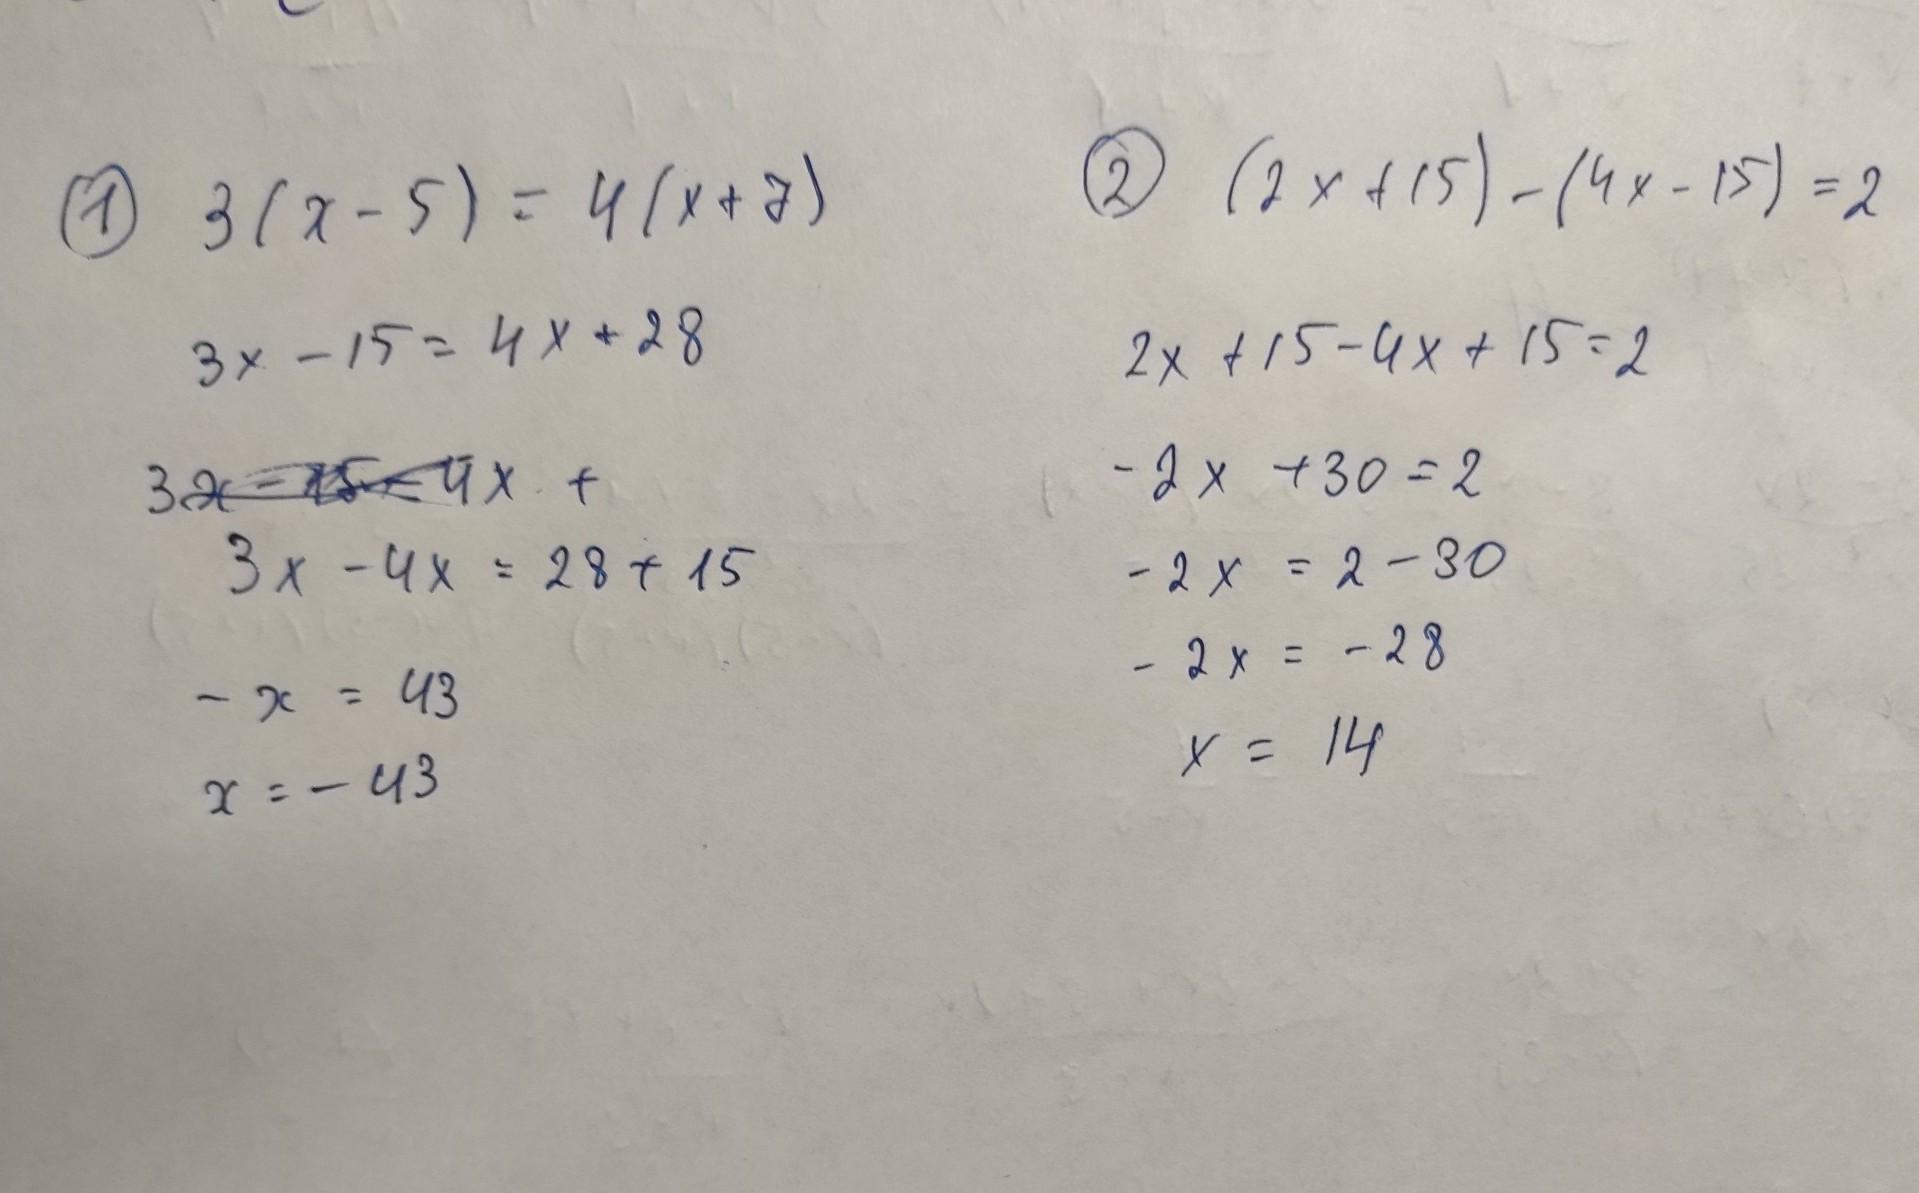 ① 3(x-5) = 4(x+7)
3x - 15 = 4x + 28
3x - 15 = 4x +
3x - 4x = 28 + 15
- x = 43
x = - 43
② (2x+15) - (4x-15) = 2
2x + 15 - 4x + 15 = 2
-2x + 30 = 2
-2x = 2 - 30
- 2x = - 28
x = 14